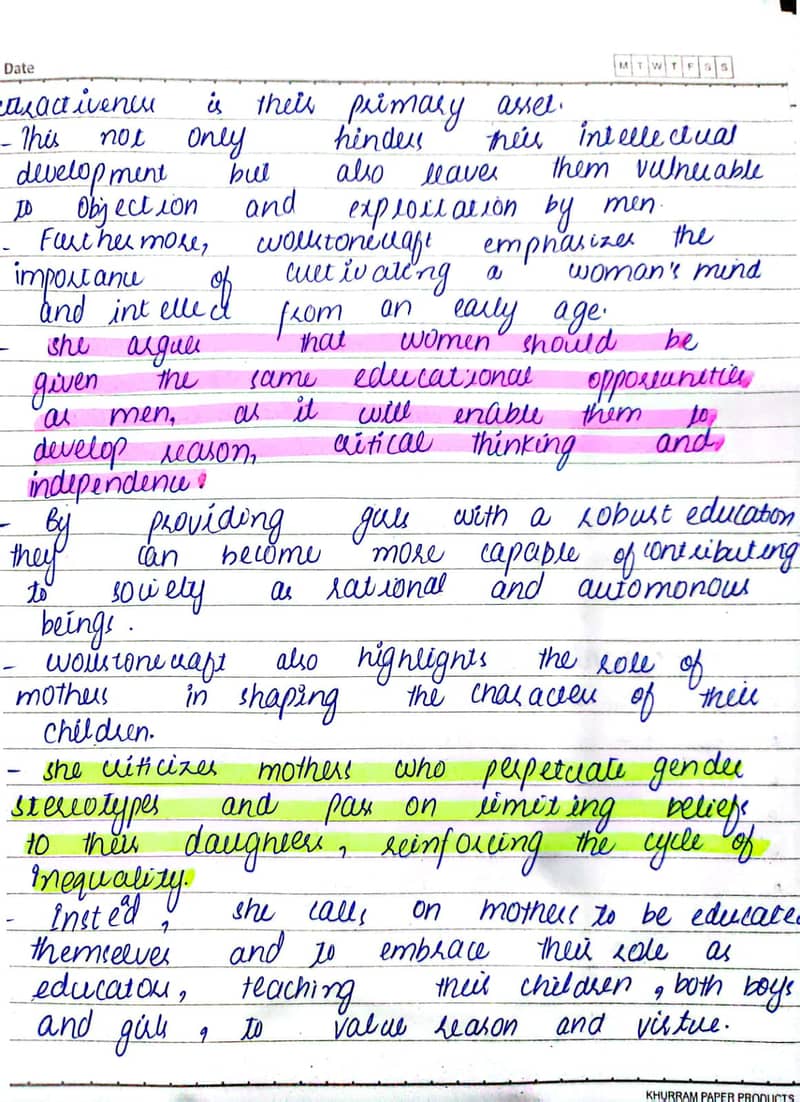 Date
M T W T F S S
aractiveness is their primary asset.
- This not only hinders their intellectual
development but also leaves them vulneuable
to objection and exploitation by men.
- Furthermore, wollstonecraft emphasizes the
importance of cultivating a woman's mind
and intellect from an early age.
- she argues that women should be
given the same educational opportunities
as men, as it will enable them to
develop reason, critical thinking and
independence.
- By providing girls with a robust education
they can become more capable of contributing
to society as rational and automonous
beings.
- wollstonecraft also highlights the role of
mothers in shaping the character of their
children.
- she criticizes mothers who perpetuate gender
stereotypes and pass on limiting beliefs
to their daughters, reinforcing the cycle of
inequality.
- Instead, she calls on mothers to be educated
themselves and to embrace their role as
educators, teaching their children, both boys
and girls, to value reason and virtue.
KHURRAM PAPER PRODUCTS